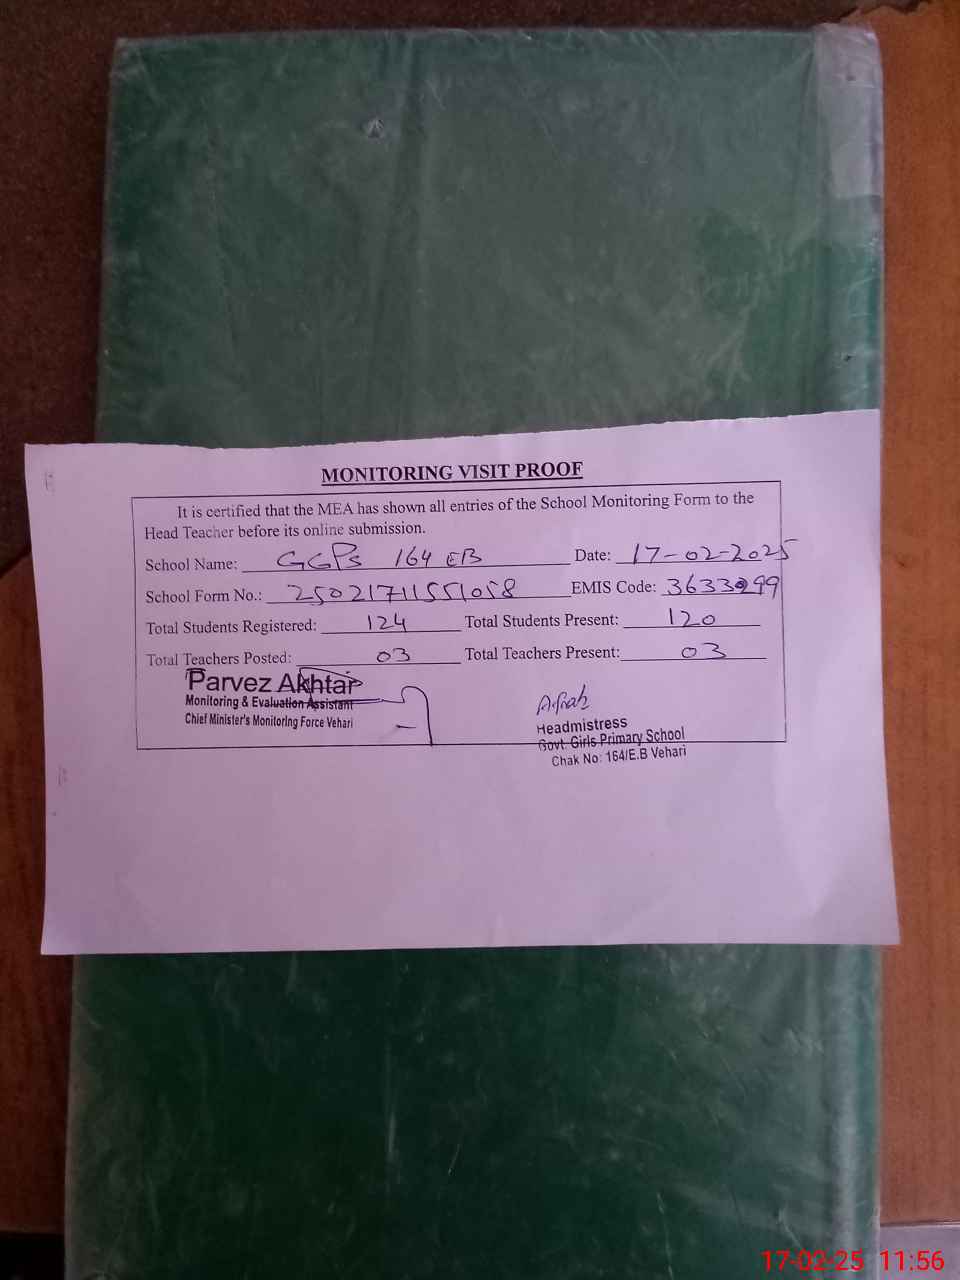 MONITORING VISIT PROOF
It is certified that the MEA has shown all entries of the School Monitoring Form to the
Head Teacher before its online submission.
School Name: GGPs 164 EB Date: 17-02-2025
School Form No.: 25021711551058 EMIS Code: 36330299
Total Students Registered: 124 Total Students Present: 120
Total Teachers Posted: 03 Total Teachers Present: 03
Parvez Akhtar
Monitoring & Evaluation Assistant
Chief Minister's Monitoring Force Vehari
Headmistress
Govt. Girls Primary School
Chak No: 164/E.B Vehari
17-02-25 11:56